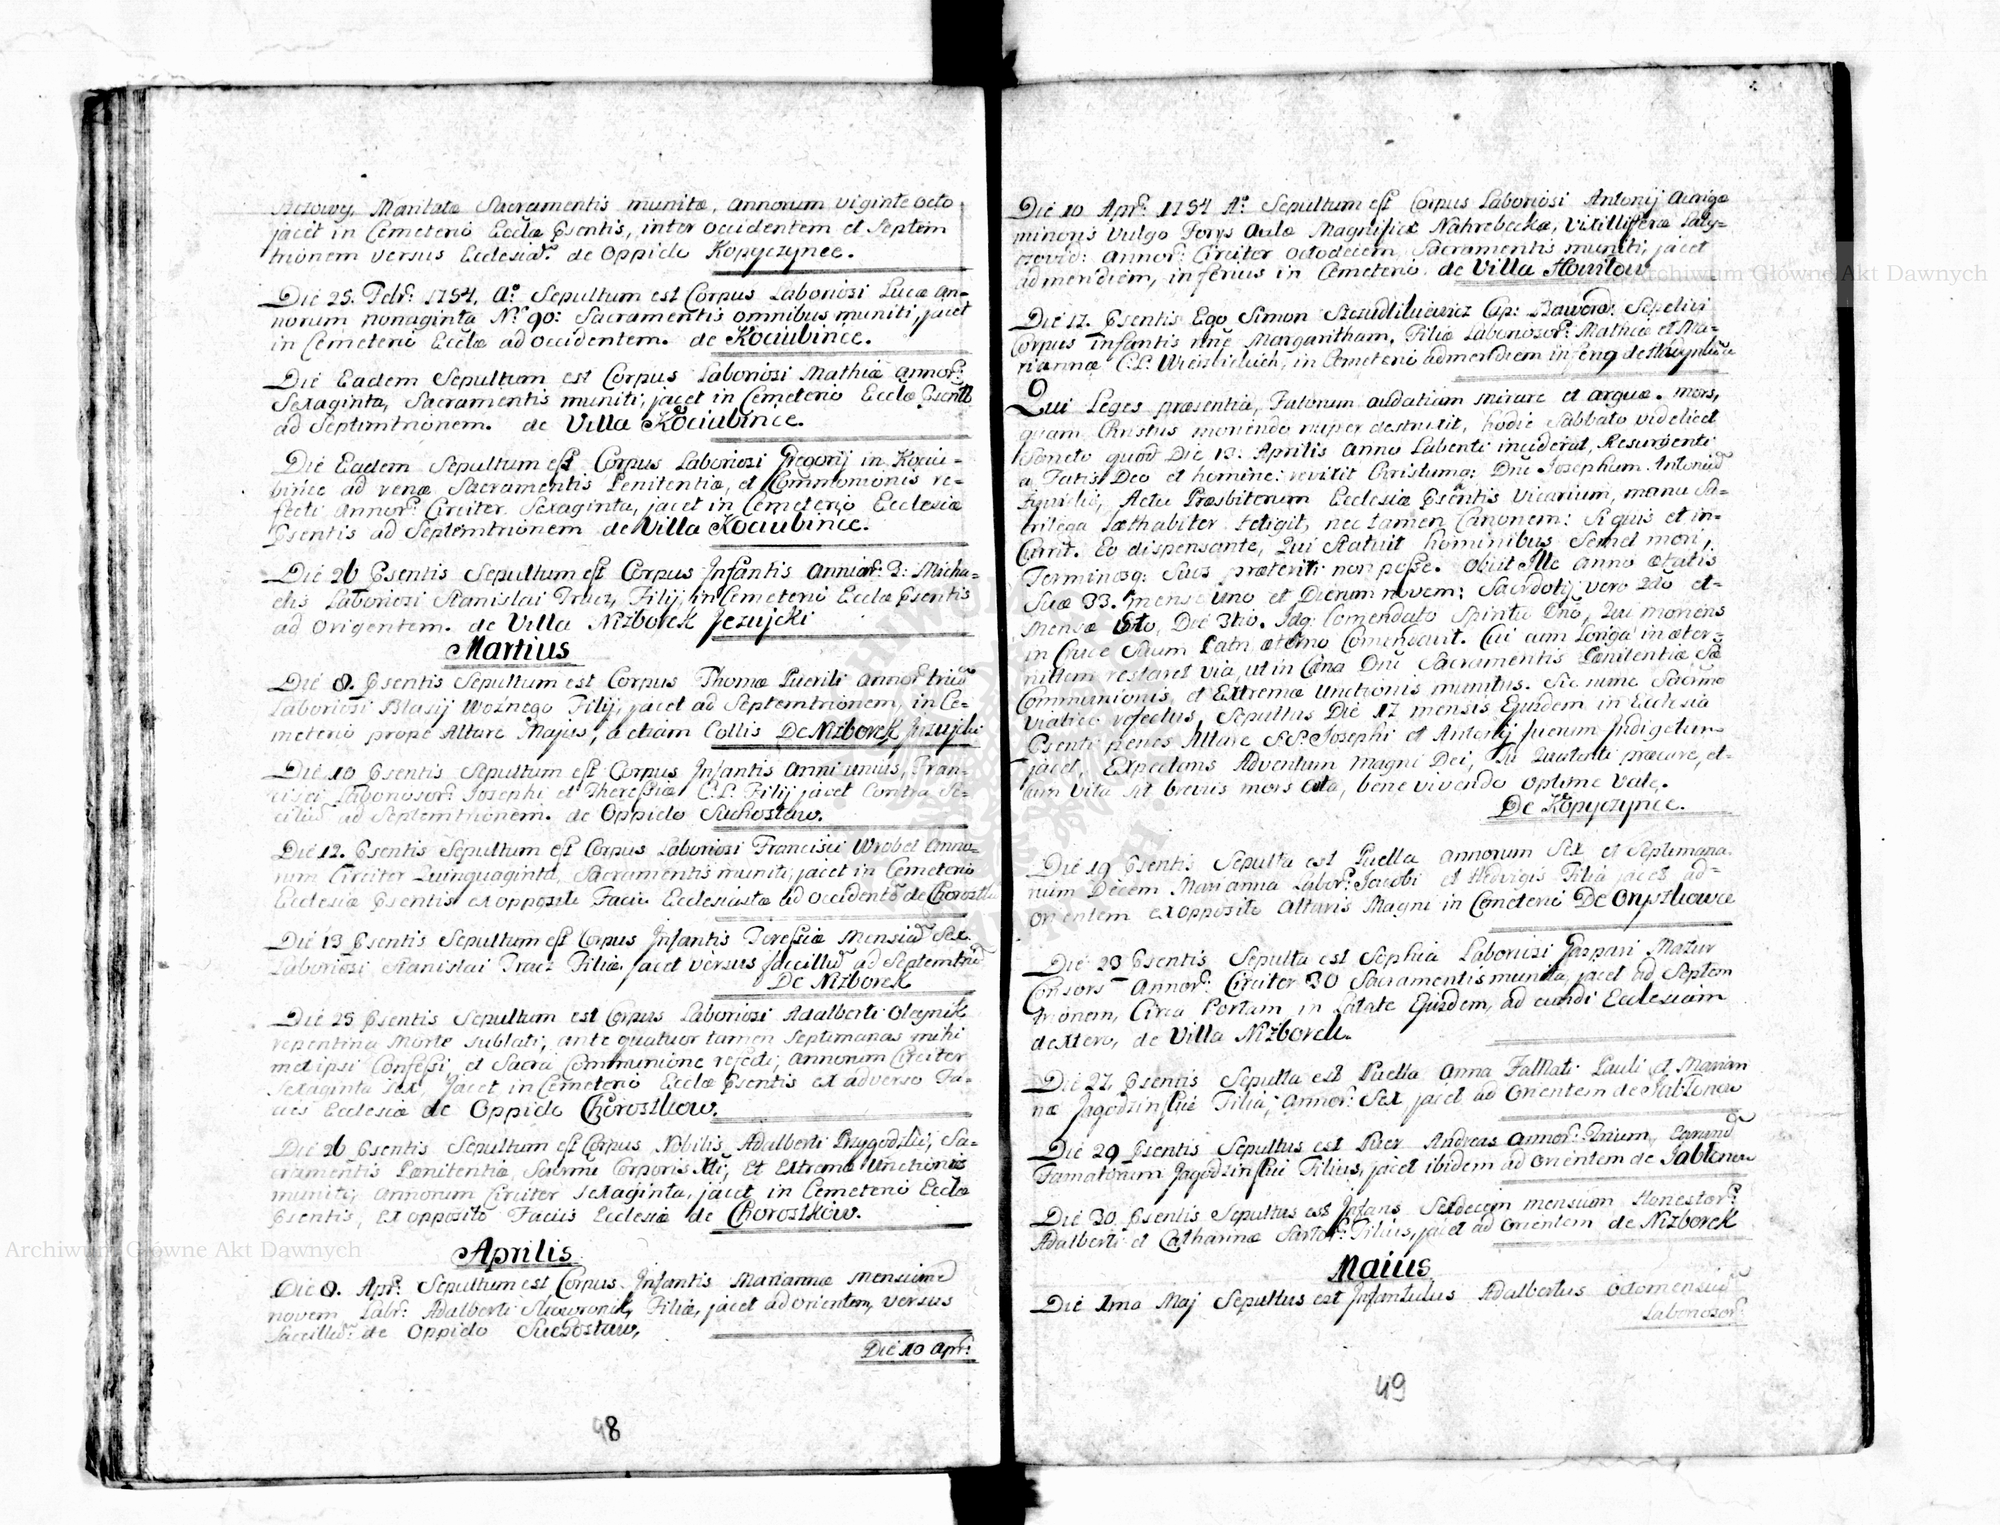 Maritatæ Sacramentis munitæ, annorum viginte octo
jacet in Cemeterio Ecclæ Psentis, inter occidentem et Septem
trionem versus Ecclesiã. de Oppido Kopyczynce.
Die 25. Febr: 1754. Aº Sepultum est Corpus Laboriosi Lucæ an=
norum nonaginta Nº 90: Sacramentis omnibus muniti, jacet
in Cemeterio Ecclæ ad occidentem. de Kociubince.
Die Eadem Sepultum est Corpus Laboriosi Mathiæ annor:
Sexaginta, Sacramentis muniti, jacet in Cemeterio Ecclæ Psentis
ad Septemtrionem. de Villa Kociubince.
Die Eadem Sepultum est Corpus Laboriosi Gregorij in Kociu=
bince ad venæ Sacramentis Penitentiæ, et Commonionis re=
fecti annor: Circiter Sexaginta, jacet in Cemeterio Ecclesiæ
Psentis ad Septemtrionem de Villa Kociubince.
Die 26 Psentis Sepultum est Corpus Infantis Annior: 2: Micha=
elis Laboriosi Stanislai Tracz, Filij, in Cemeterio Ecclæ Psentis
ad Origentem. de Villa Nizborek Jezujcki
Martius
Die 8. Psentis Sepultum est Corpus Thomæ Puerili annor: triũ
Laboriosi Blasij Woznego Filij, jacet ad Septemtrionem, in Ce=
meterio prope Altare Majus, Collis De Nizborek Jezujcki
Die 10 Psentis Sepultum est Corpus Infantis Anni unius, Fran=
cisci Laboriosor: Josephi et Theressiæ C:L: Filij jacet Contra
ad Septemtrionem. de Oppido Suchostaw.
Die 12. Psentis Sepultum est Corpus Laboriosi Francisci Wrobel Anno
rum Circiter Quinquaginta, Sacramentis muniti, jacet in Cemeterio
Ecclesiæ Psentis ex opposito Facie Ecclesiastæ ad occidente de Chorostkow
Die 13 Psentis Sepultum est Corpus Infantis Teressiæ Mensiũ Sex.
Laboriosi Stanislai Tracz Filiæ jacet versus Saccillũ ad Septemtrio
De Nizborek
Die 25 Psentis Sepultum est Corpus Laboriosi Adalberti Oleynik
repentina Morte sublati, ante quatuor tamen Septimanas mihi
metipsi Confessi, et Sacra Communione refecti, annorum Circiter
Sexaginta sex, Jacet in Cemeterio Ecclæ Psentis ex adverso Fa=
cies Ecclesiæ de Oppido Chorostkow.
Die 26 Psentis Sepultum est Corpus Nobilis Adalberti Przygodzki, Sa=
cramentis Pænitentiæ, Sacrmi Corporis Xti, Et Extremæ Unctionis
muniti, annorum Circiter Sexaginta, jacet in Cemeterio Ecclæ
Psentis, Ex opposito Facies Ecclesiæ de Chorostkow.
Aprilis
Die 8. Apr: Sepultum est Corpus Infantis Mariannæ Mensium
novem Labr: Adalberti Skowronik, Filiæ, jacet ad orientem, versus
Saccillũ: de Oppido Suchostaw.
Die 10 Apr:
98
Die 10 Apr: 1754 Aº Sepultum est Corpus Laboriosi Antonij Aurigæ
minoris vulgo Forys Aulæ Magnificæ Nahrebeckæ, Vixilliferæ
annor: Circiter Octodecem, Sacramentis muniti, jacet
ad meridiem, inferius in Cemeterio. de Villa Howilow
Die 17. Psentis Ego Simon Cap: Sepelivi
Corpus Infantis nñe Margaritham, Filiæ Laboriosor: Mathiæ et Ma=
riannæ C:L: in Cemeterio ad meridiem
Qui Leges præsentia, Fatorum audatiam mirare et argue. mors,
quam Christus moriendo nuper destruxit, hodie Sabbato videlicet
Sancto quod Die 13. Aprilis Anno Labenti inciderat, Resurgenti
a Fatis Deo et homine: Christum: Dnũ Josephum Antoniũ
Actu Præsbiterum Ecclesiæ Psentis Vicarium, manu Sa=
crilega Læthabiter tetigit, nec tamen Canonem: Si quis et in=
Currit. Eo dispensante, Qui Statuit hominibus Semel mori,
Terminosq: Suos præteriti non posse. Obiit Ille Anno ætatis
Suæ 33. mense uno et Dierum novem: Sacerdotij vero 2do et=
Mense Die 3tio. Idq: Comendato Spiritu Dno, Qui moriens
in Cruce Suum Patri æterno Comendavit. Cui cum Longa in æter=
nitem restaret via, ut in Cæna Dni Sacramentis Pænitentiæ, Sæ
Communionis, et Extremæ Unctionis munitus. Sic nunc Sacrmo
Viatico refectus, Sepultus Die 17 mensis Ejusdem in Ecclesia
Psenti penes Altare SS: Josephi et Antonij
jacet, Expectans Adventum magni Dei, Tu precare, et=
iam Vita sit brevis mors bene vivendo optime Vale.
De Kopyczynce.
Die 19 Psentis Sepulta est Puella annorum Sex et Septimana
num Decem Marianna Labor: Jacobi et Hedvigis Filia jacet ad=
orientem ex opposito Altaris Magni in Cemeterio De Oryszkowce
Die 23 Psentis Sepulta est Sophia Laboriosi Gaspari Mazur
Consors Annor: Circiter 30 Sacramentis munita, jacet ad Septem
trionem, Circa Portam in Latate Ejusdem, ad eundi Ecclesiam
dextero, de Villa Nizborek.
Die 27. Psentis Sepulta est Puella Anna Famati Pauli et Marian
næ Jagodzinskie Filia, Annor: Sex jacet ad Orientem de Jablonow
Die 29 Psentis Sepultus est Puer Andreas Annor: Trium,
Famatorum Jagodzinskie Filius, jacet ibidem ad Orientem de Jablonow
Die 30 Psentis Sepultus est Infans Sexdecem mensium Honestor:
Adalberti et Catharinæ Sartor: Filius, jacet ad Orientem de Nizborek
Maius
Die 1ma Maj Sepultus est Infantulus Adalbertus octomensiũ
Laboriosor:
49
Archiwum Główne Akt Dawnych
Archiwum Główne Akt Dawnych